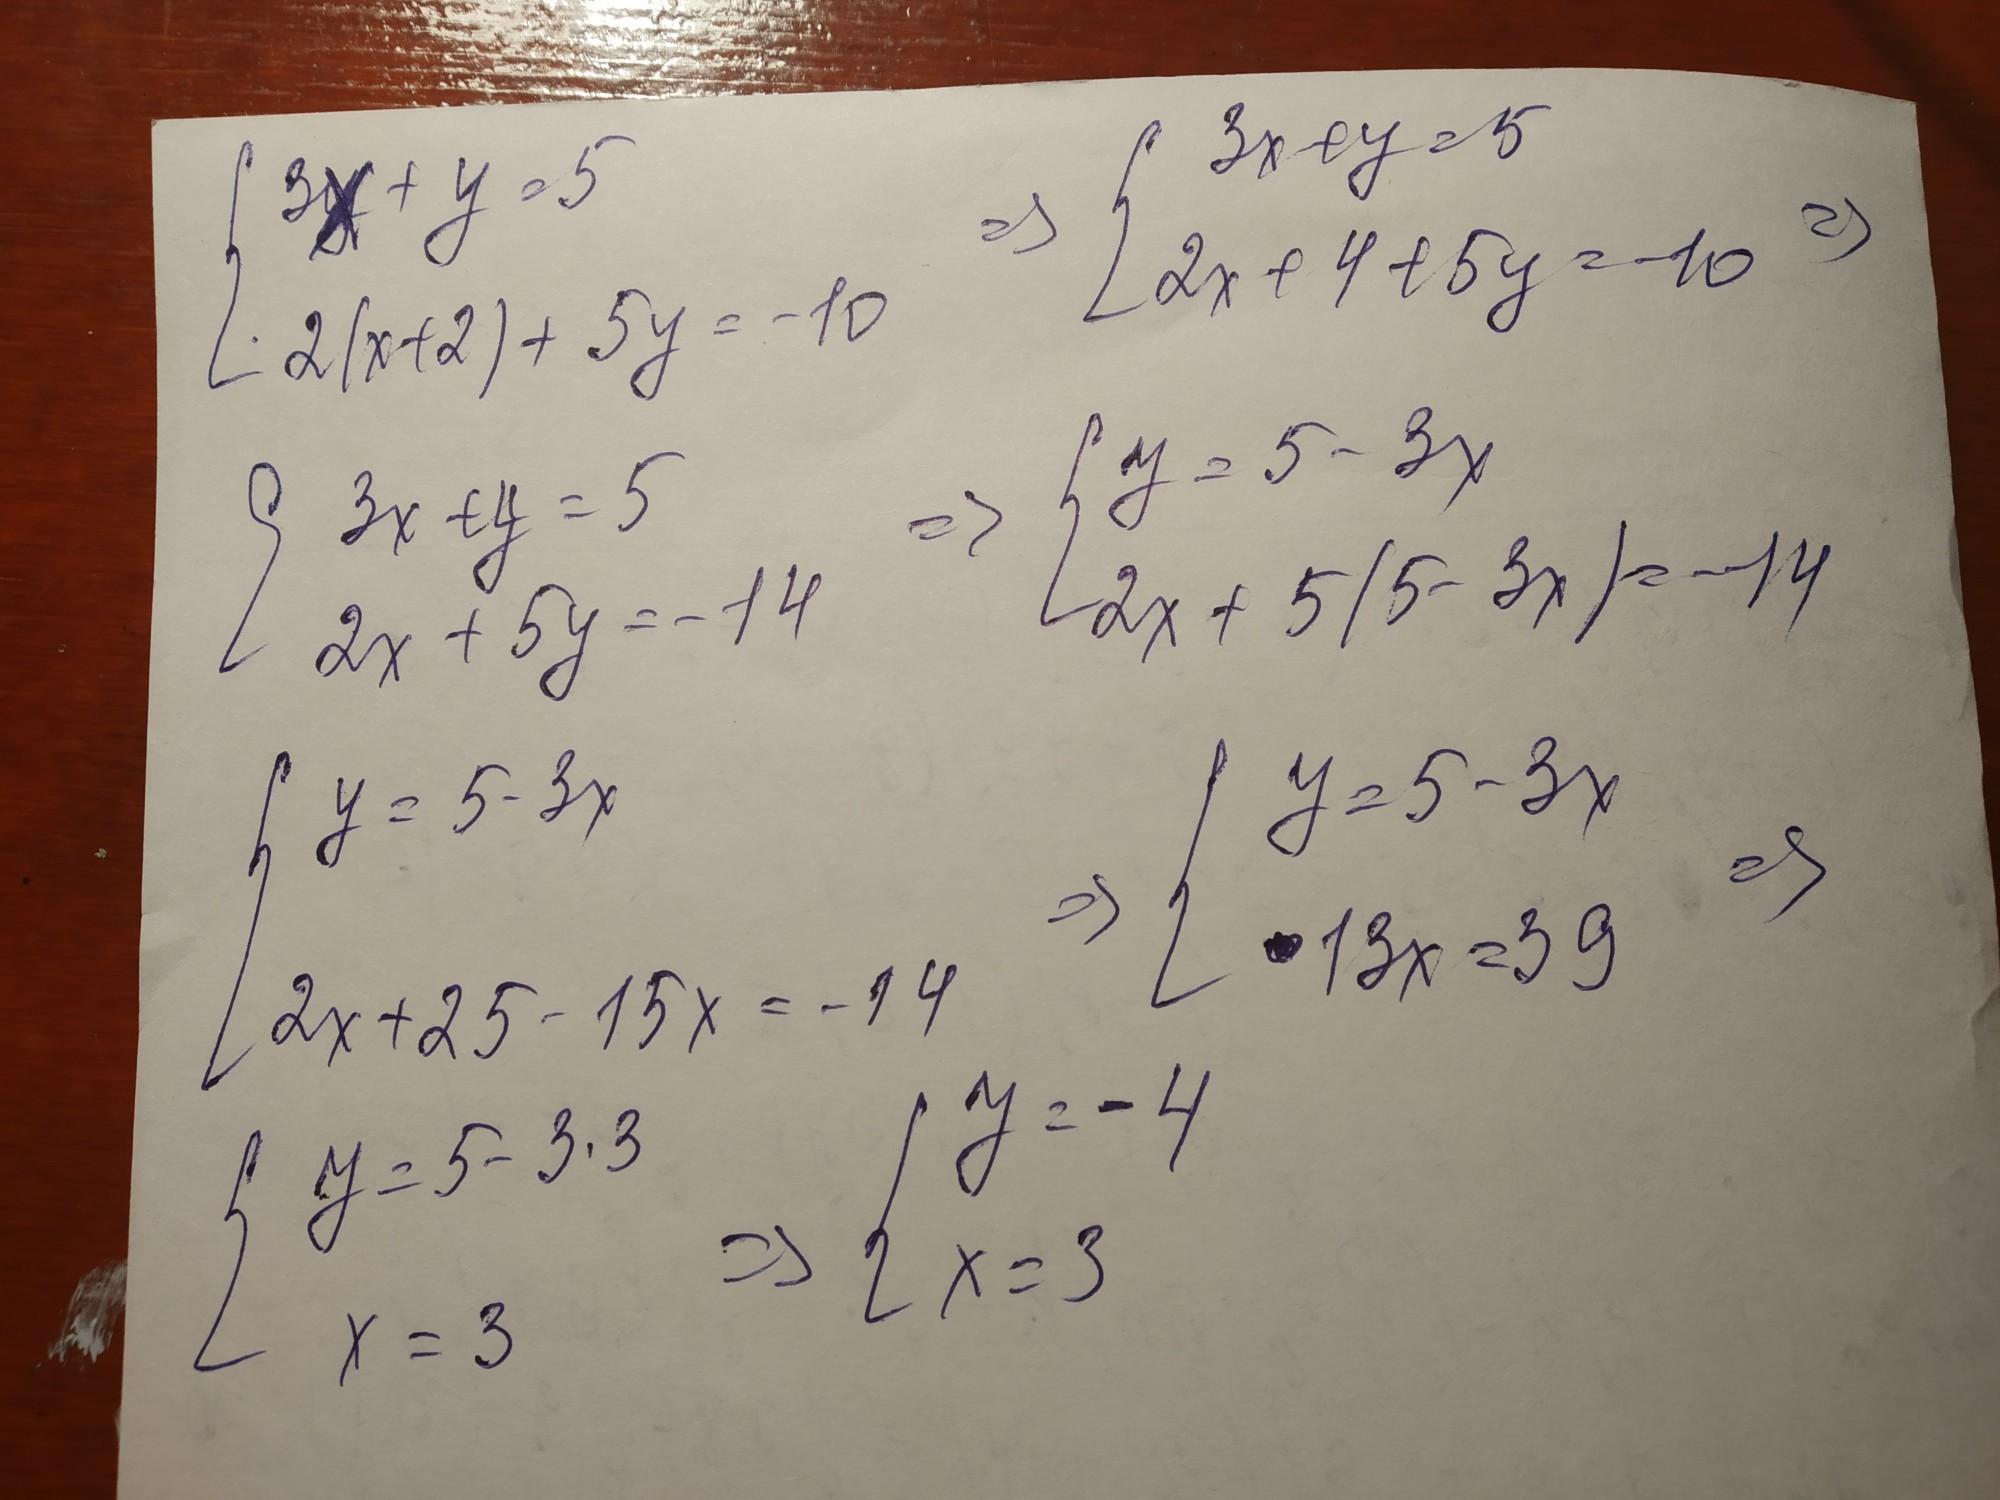 3x + y = 5
2(x+2) + 5y = -10
=>
3x + y = 5
2x + 4 + 5y = -10
=>
3x + y = 5
2x + 5y = -14
=>
y = 5 - 3x
2x + 5(5 - 3x) = -14
y = 5 - 3x
2x + 25 - 15x = -14
=>
y = 5 - 3x
13x = 39
=>
y = 5 - 3·3
x = 3
=>
y = -4
x = 3